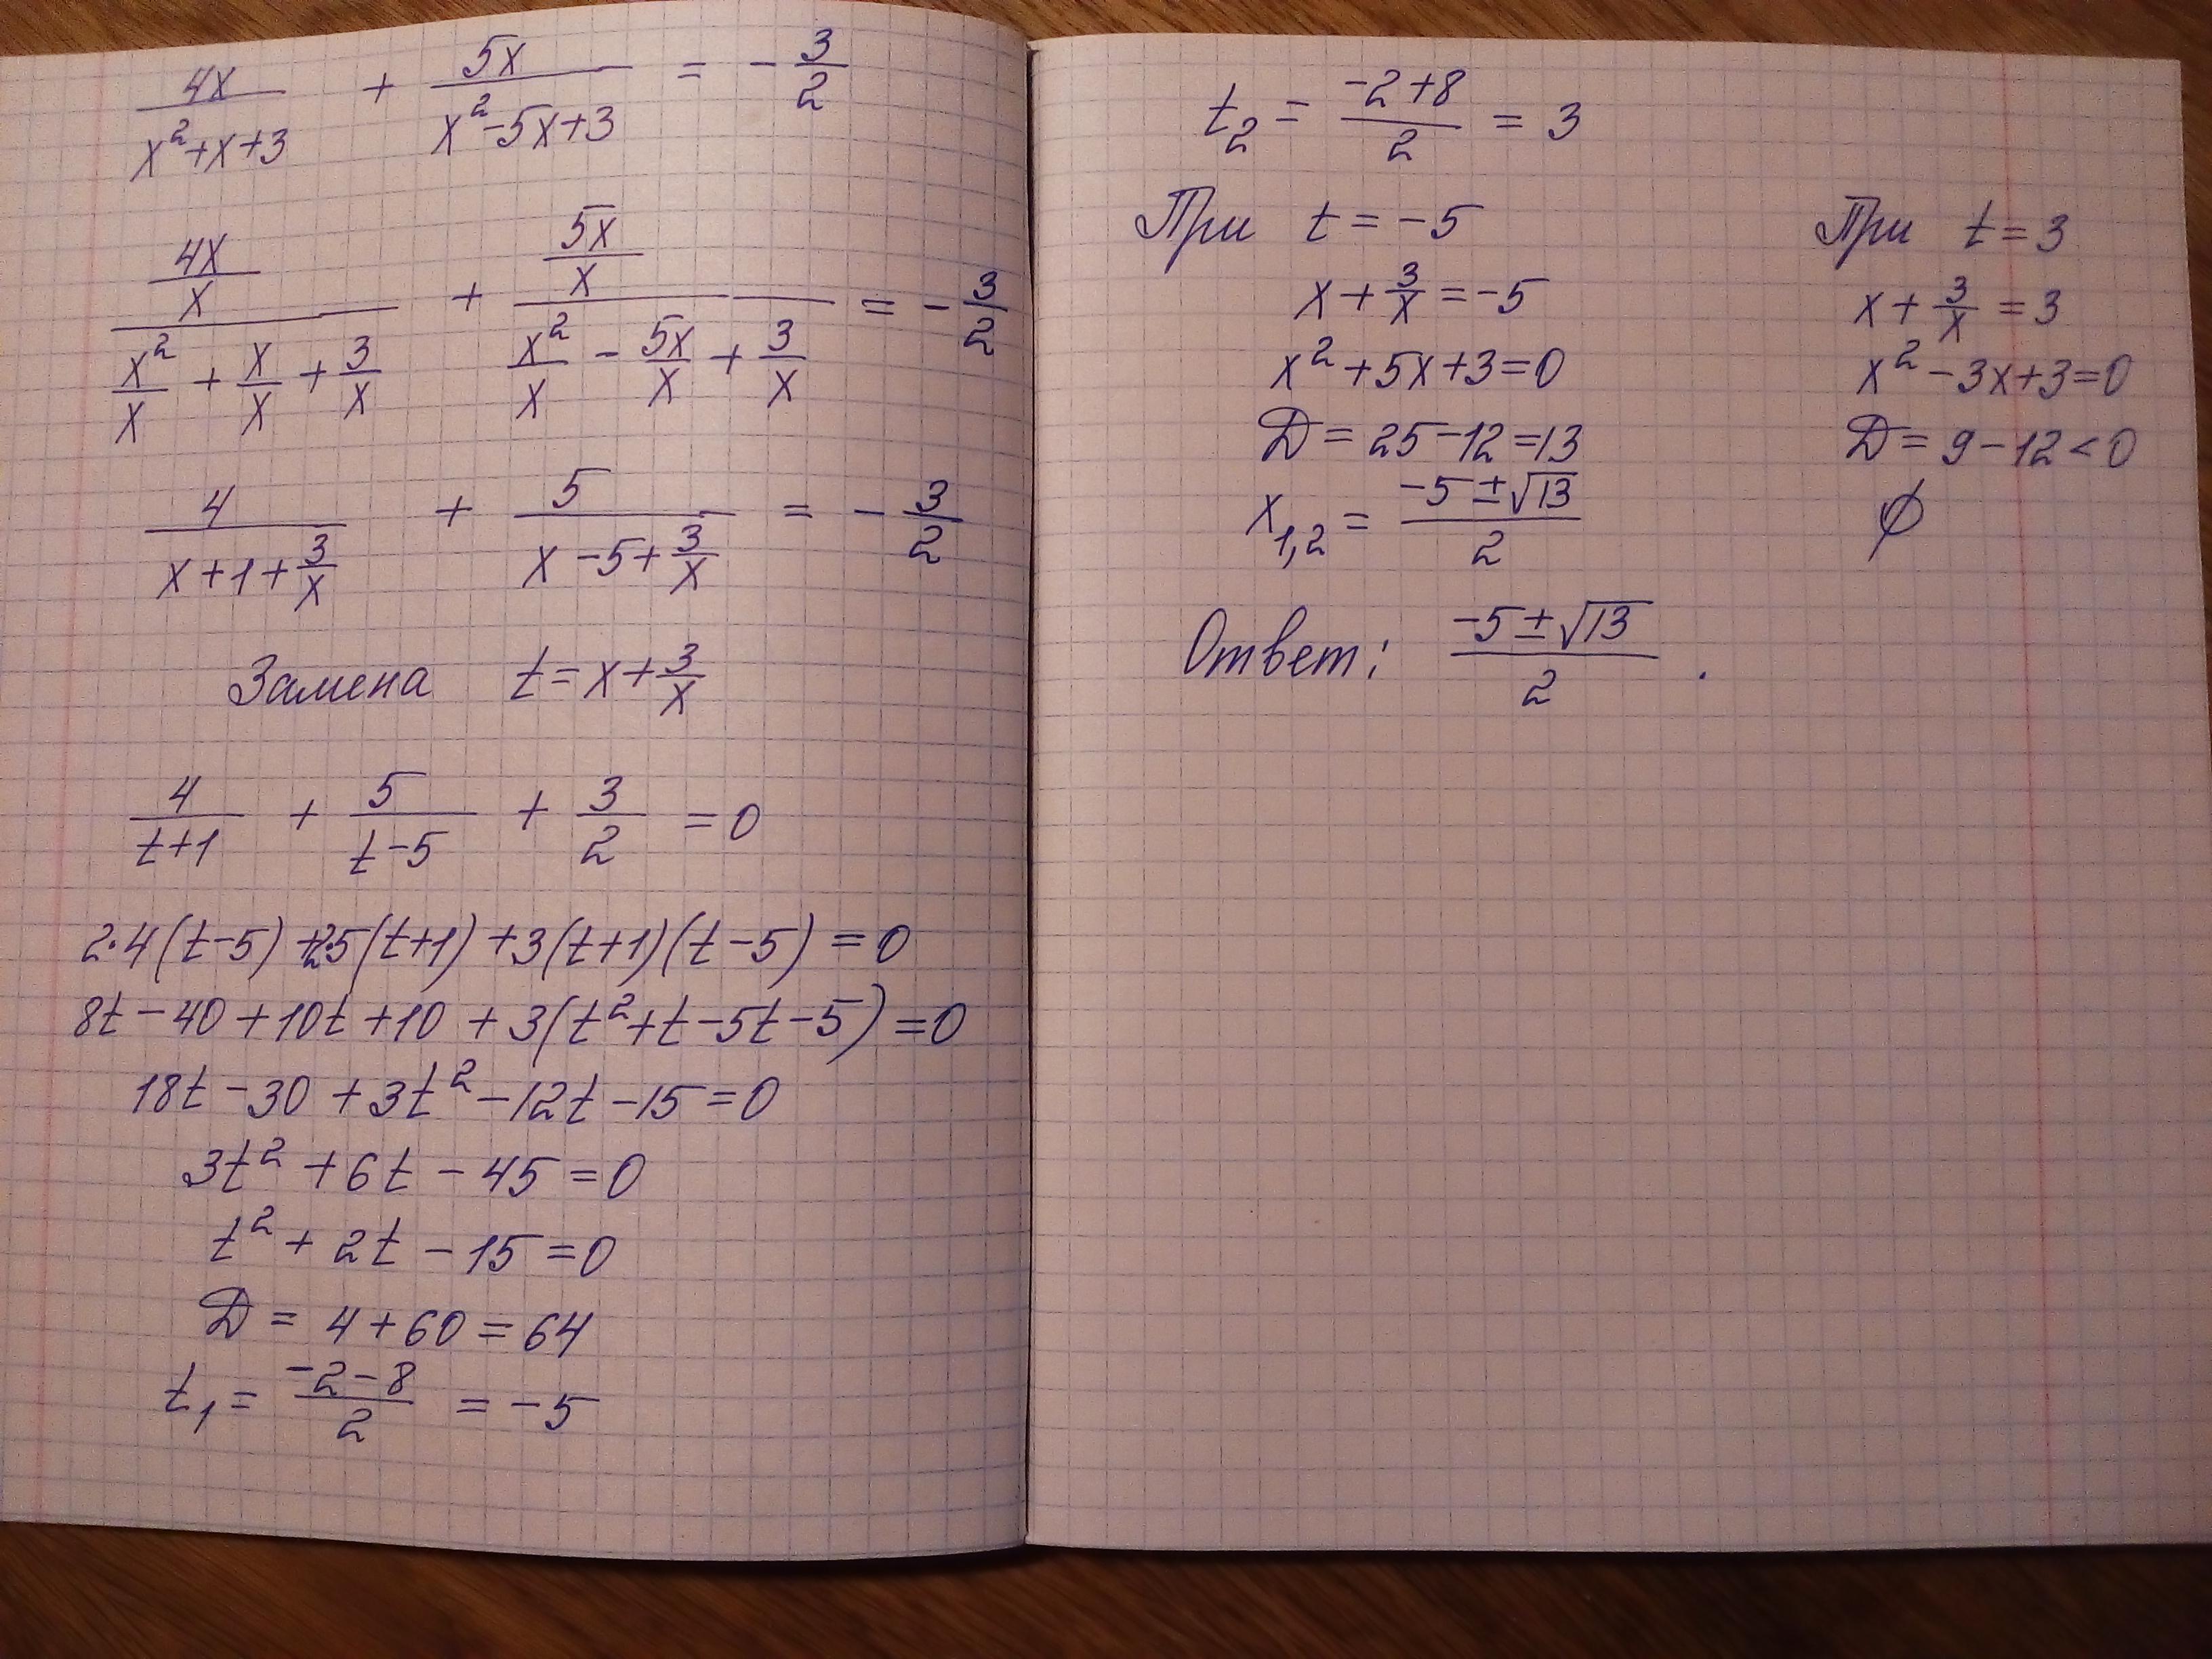 4x/(x²+x+3) + 5x/(x²-5x+3) = -3/2
(4x/x)/(x²/x + x/x + 3/x) + (5x/x)/(x²/x - 5x/x + 3/x) = -3/2
4/(x+1+3/x) + 5/(x-5+3/x) = -3/2
Замена t = x+3/x
4/(t+1) + 5/(t-5) + 3/2 = 0
2·4(t-5)+2·5(t+1)+3(t+1)(t-5)=0
8t-40+10t+10+3(t²+t-5t-5)=0
18t-30+3t²-12t-15=0
3t²+6t-45=0
t²+2t-15=0
D = 4+60=64
t₁ = (-2-8)/2 = -5
t₂ = (-2+8)/2 = 3
При t=-5
x+3/x=-5
x²+5x+3=0
D = 25-12=13
x₁,₂ = (-5±√13)/2
При t=3
x+3/x=3
x²-3x+3=0
D=9-12<0
∅
Ответ: (-5±√13)/2.